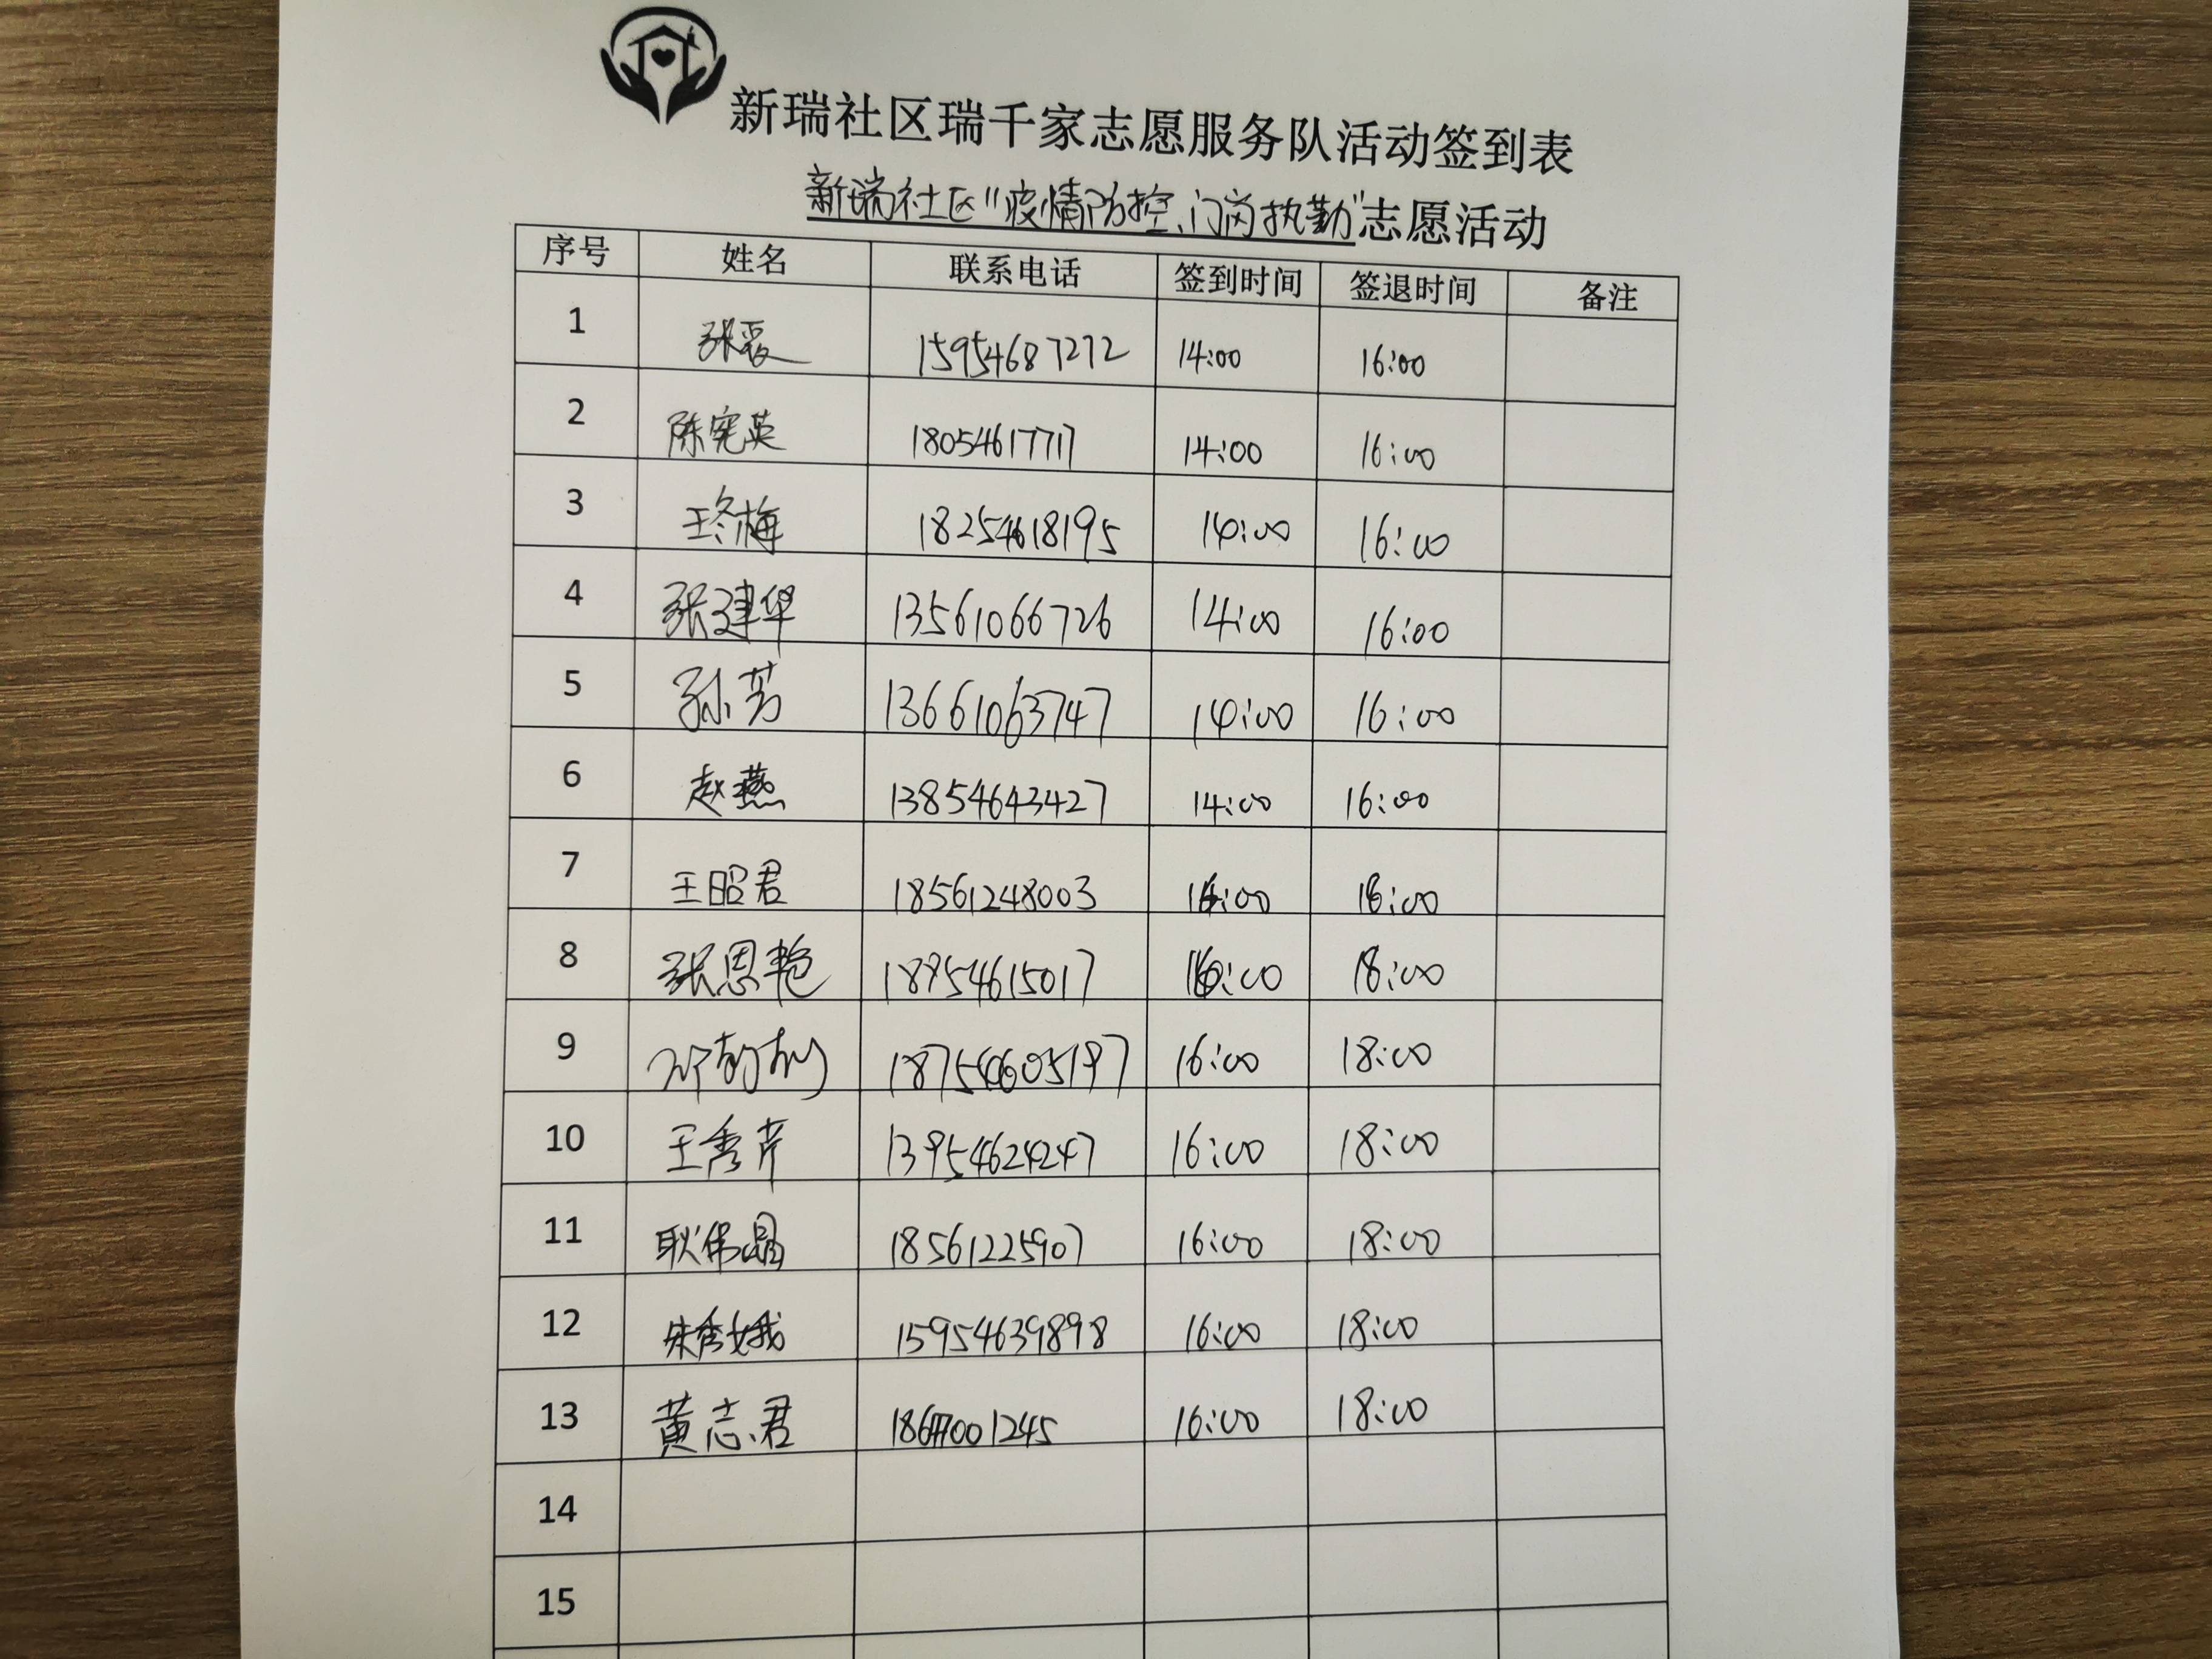 新瑞社区瑞千家志愿服务队活动签到表
新瑞社区“疫情防控、门岗执勤”志愿活动
序号 姓名 联系电话 签到时间 签退时间 备注
1 张 15954687272 14:00 16:00
2 陈宪英 18054617717 14:00 16:00
3 王冬梅 18254618195 14:00 16:00
4 张建华 13561066726 14:00 16:00
5 孙芳 13661063747 14:00 16:00
6 赵燕 13854643427 14:00 16:00
7 王昭君 18561248003 14:00 16:00
8 张恩艳 18954615017 16:00 18:00
9 18754605197 16:00 18:00
10 王秀芹 13954624247 16:00 18:00
11 耿伟晶 18561225907 16:00 18:00
12 朱秀娥 15954639898 16:00 18:00
13 黄志君 16:00 18:00
14
15